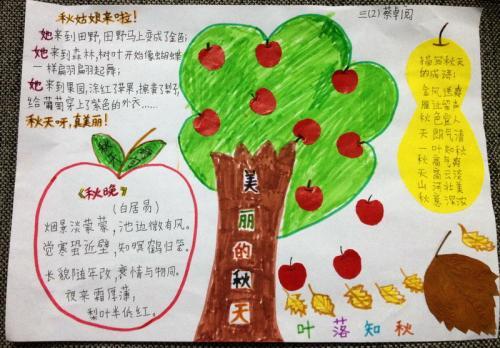 秋姑娘来啦！
她来到田野,田野马上变成了金黄;
她来到森林,树叶开始像蝴蝶
一样翩翩起舞;
她来到果园,涂红了苹果,擦黄了梨子,
给葡萄穿上了紫色的外衣……
秋天呀,真美丽！
《秋晚》
(白居易)
烟景淡蒙蒙,池边微有风。
觉寒蛩近壁,知暝鹤归笼。
长貌随年改,衰情与物同。
夜来霜厚薄,
梨叶半低红。
美
丽
的
秋
天
三(2)蔡卓圆
描写秋天
的成语:
金风送爽
雁过留声
秋色宜人
天朗气清
一叶知秋
秋高气爽
天高云淡
山河壮美
秋意深浓
叶落知秋